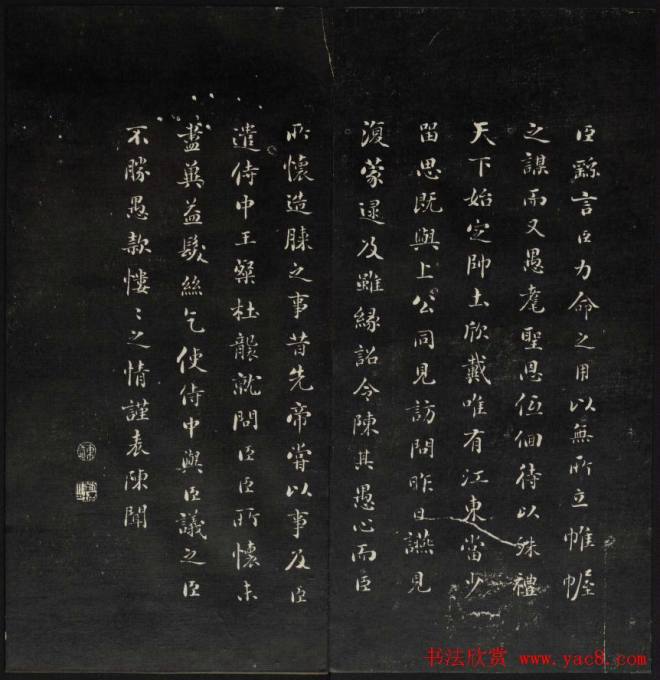 臣繇言臣力命之用以無所立帷幄
之謀而又愚耄聖恩伍佪待以殊禮
天下始定帥土欣戴唯有江東當少
留思既與上公同見訪問昨日讌見
復蒙逮及雖緣詔令陳其愚心而臣
所懷造膝之事昔先帝嘗以事及臣
遣侍中王粲杜襲就問臣臣所懷未
盡冀益髮絲乞使侍中與臣議之臣
不勝愚款慺〻之情謹表陳聞
书法欣赏 www.yac8.com